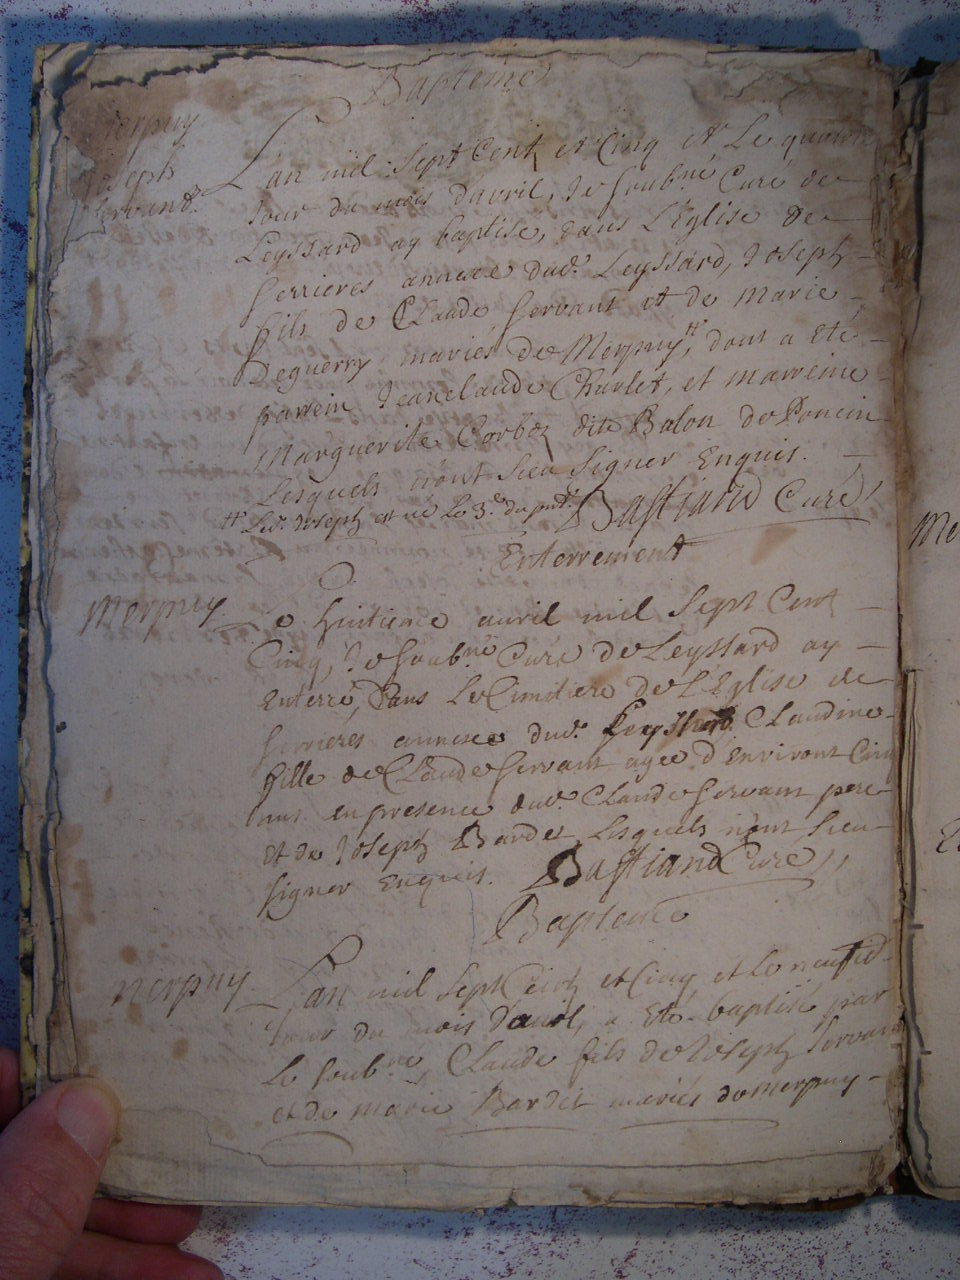 Baptemes
Merpuy
Joseph
Servand
L'an mil sept Cent et Cinq et Le quatri
Jour du mois d'avril, Je soub.né Curé de
Leyssard ay baptisé, dans L'Eglise de
Serrieres annexe dud. Leyssard, Joseph
fils de Claude Servant et de Marie
Deguerry mariés de Merpuy #, dont a eté
parrein Jeanclaude Charlet, et marreine
Marguerite Corboz dite Balon de Poncin
Lesquels n'ont sceu signer Enquis.
# Led. Joseph est né Le 3.e du pnt. Bastiand Curé
Enterrement
Merpuy
Le huitieme avril mil sept Cent
Cinq, Je soub.né Curé de Leyssard ay
Enterré, Dans Le Cimitiere de L'Eglise de
Serrieres annexe dud. Leyssard Claudine
fille de Claude Servant agée d'Environt Cinq
ans en presence dud. Claude Servant pere
et de Joseph Bardet Lesquels n'ont sceu
signer Enquis. Bastiand Curé
Bapteme
Merpuy
L'an mil sept Cent et Cinq et Le neufvie
Jour du mois d'avril, a Eté baptisé par
Le soub.né, Claude fils de Joseph Servan
et de Marie Bardet mariés de Merpuy